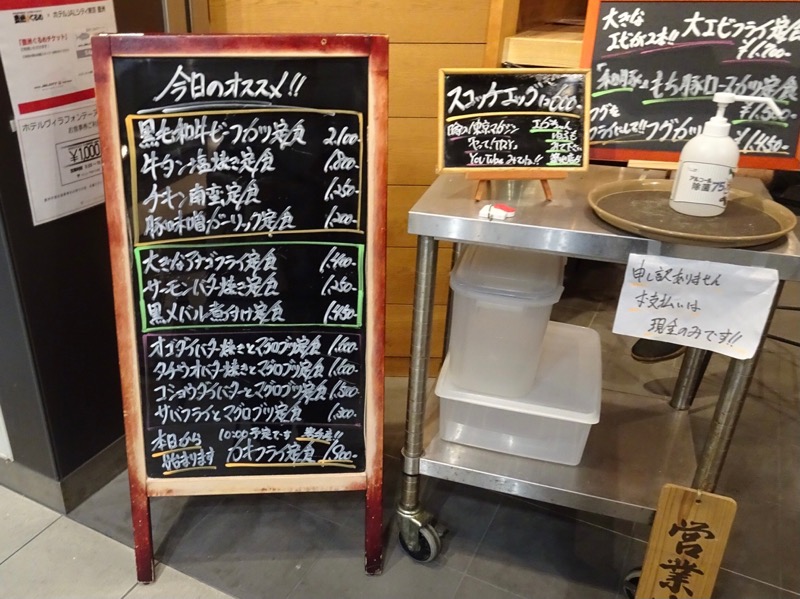 今日のオススメ!!
黒毛和牛ビーフカツ定食 2,100-
牛タン塩焼き定食 1,800-
チキン南蛮定食 1,250-
豚味噌ガーリック定食 1,200-
大きなアナゴフライ定食 1,400-
サーモンバター焼き定食 1,250-
黒メバル煮付け定食 1,450-
オゴダイバター焼きとマグロブツ定食 1,600-
タチウオバター焼きとマグロブツ定食 1,600-
コショウダイバターとマグロブツ定食 1,500-
サバフライとマグロブツ定食 1,300-
本日から 10:00予定です
始まります カキフライ定食 1,900-
スコッチエッグ 600-
YouTubeみてね!!
大きな
大エビフライ定食
¥1,700-
もち豚ロースカツ定食
¥1,500-
フグも
フライにして!! フグカツ
¥1,450-
アルコール
除菌 75
申し訳ありません
お支払いは
現金のみです!!
営業
ホテルJALシティ東京 豊洲
ホテルヴィラフォンテーヌ
¥1,000